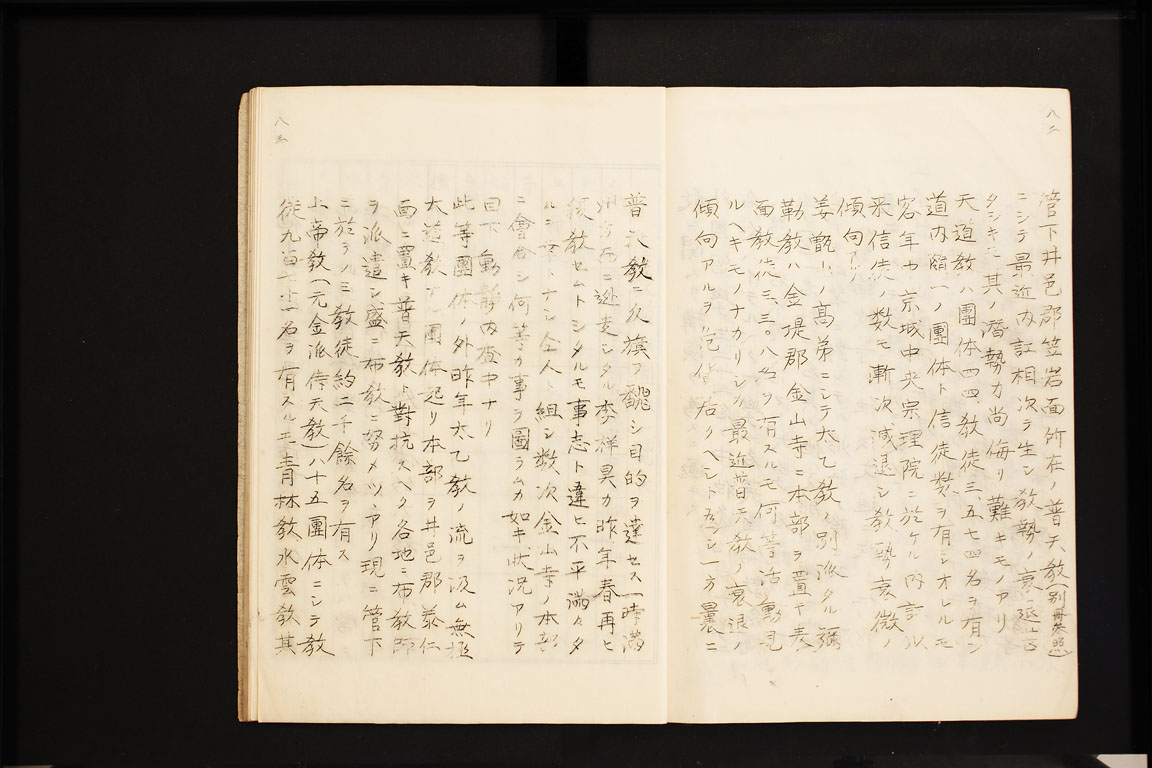 八二
管下井邑郡笠岩面所在ノ普天教(別冊参照)
ニシテ最近内訌相次テ生シ教勢ノ衰
タシキモ其ノ潜勢力尚侮リ難キモノアリ
天道教ハ團体四四教徒三五七四名ヲ有シ
道内随一ノ團体ト信徒数ヲ有シオレルモ
客年カ京城中央宗理院ニ於ケル内訌ハ
来信徒ノ数モ漸次減退シ教勢衰微ノ
傾向アリ
姜甑山ノ高弟ニシテ太乙教ノ別派タル彌
勒教ハ金堤郡金山寺ニ本部ヲ置キ表
面教徒三三〇八名ヲ有スルモ何等活動見
ルヘキモノナカリシカ最近普天教ノ衰退ノ
傾向アルヲ シ一方曩ニ
八三
普天教ニ反旗ヲ飜シ目的ヲ達セス一時滿
州方面ニ逃走シタル李祥昊カ昨年春再ヒ
採教セムトシタルモ事志ト違ヒ不平滿々タ
ルニ 全人ト組シ数次金山寺ノ本部
ニ會合シ何等カ事ヲ圖ラムカ如キ状況アリテ
目下動静内査中ナリ
此等團体ノ外昨年太乙教ノ流ヲ汲ム無極
大道教ナル團体起リ本部ヲ井邑郡泰仁
面ニ置キ普天教ト對抗スヘク各地ニ布教師
ヲ派遣シ盛ニ布教ニ努メツヽアリ現ニ管下
ニ於テノミ教徒約二千餘名ヲ有ス
上帝教(元金派侍天教)ハ十五團体ニシテ教
徒九百 名ヲ有スルモ青林教水雲教其